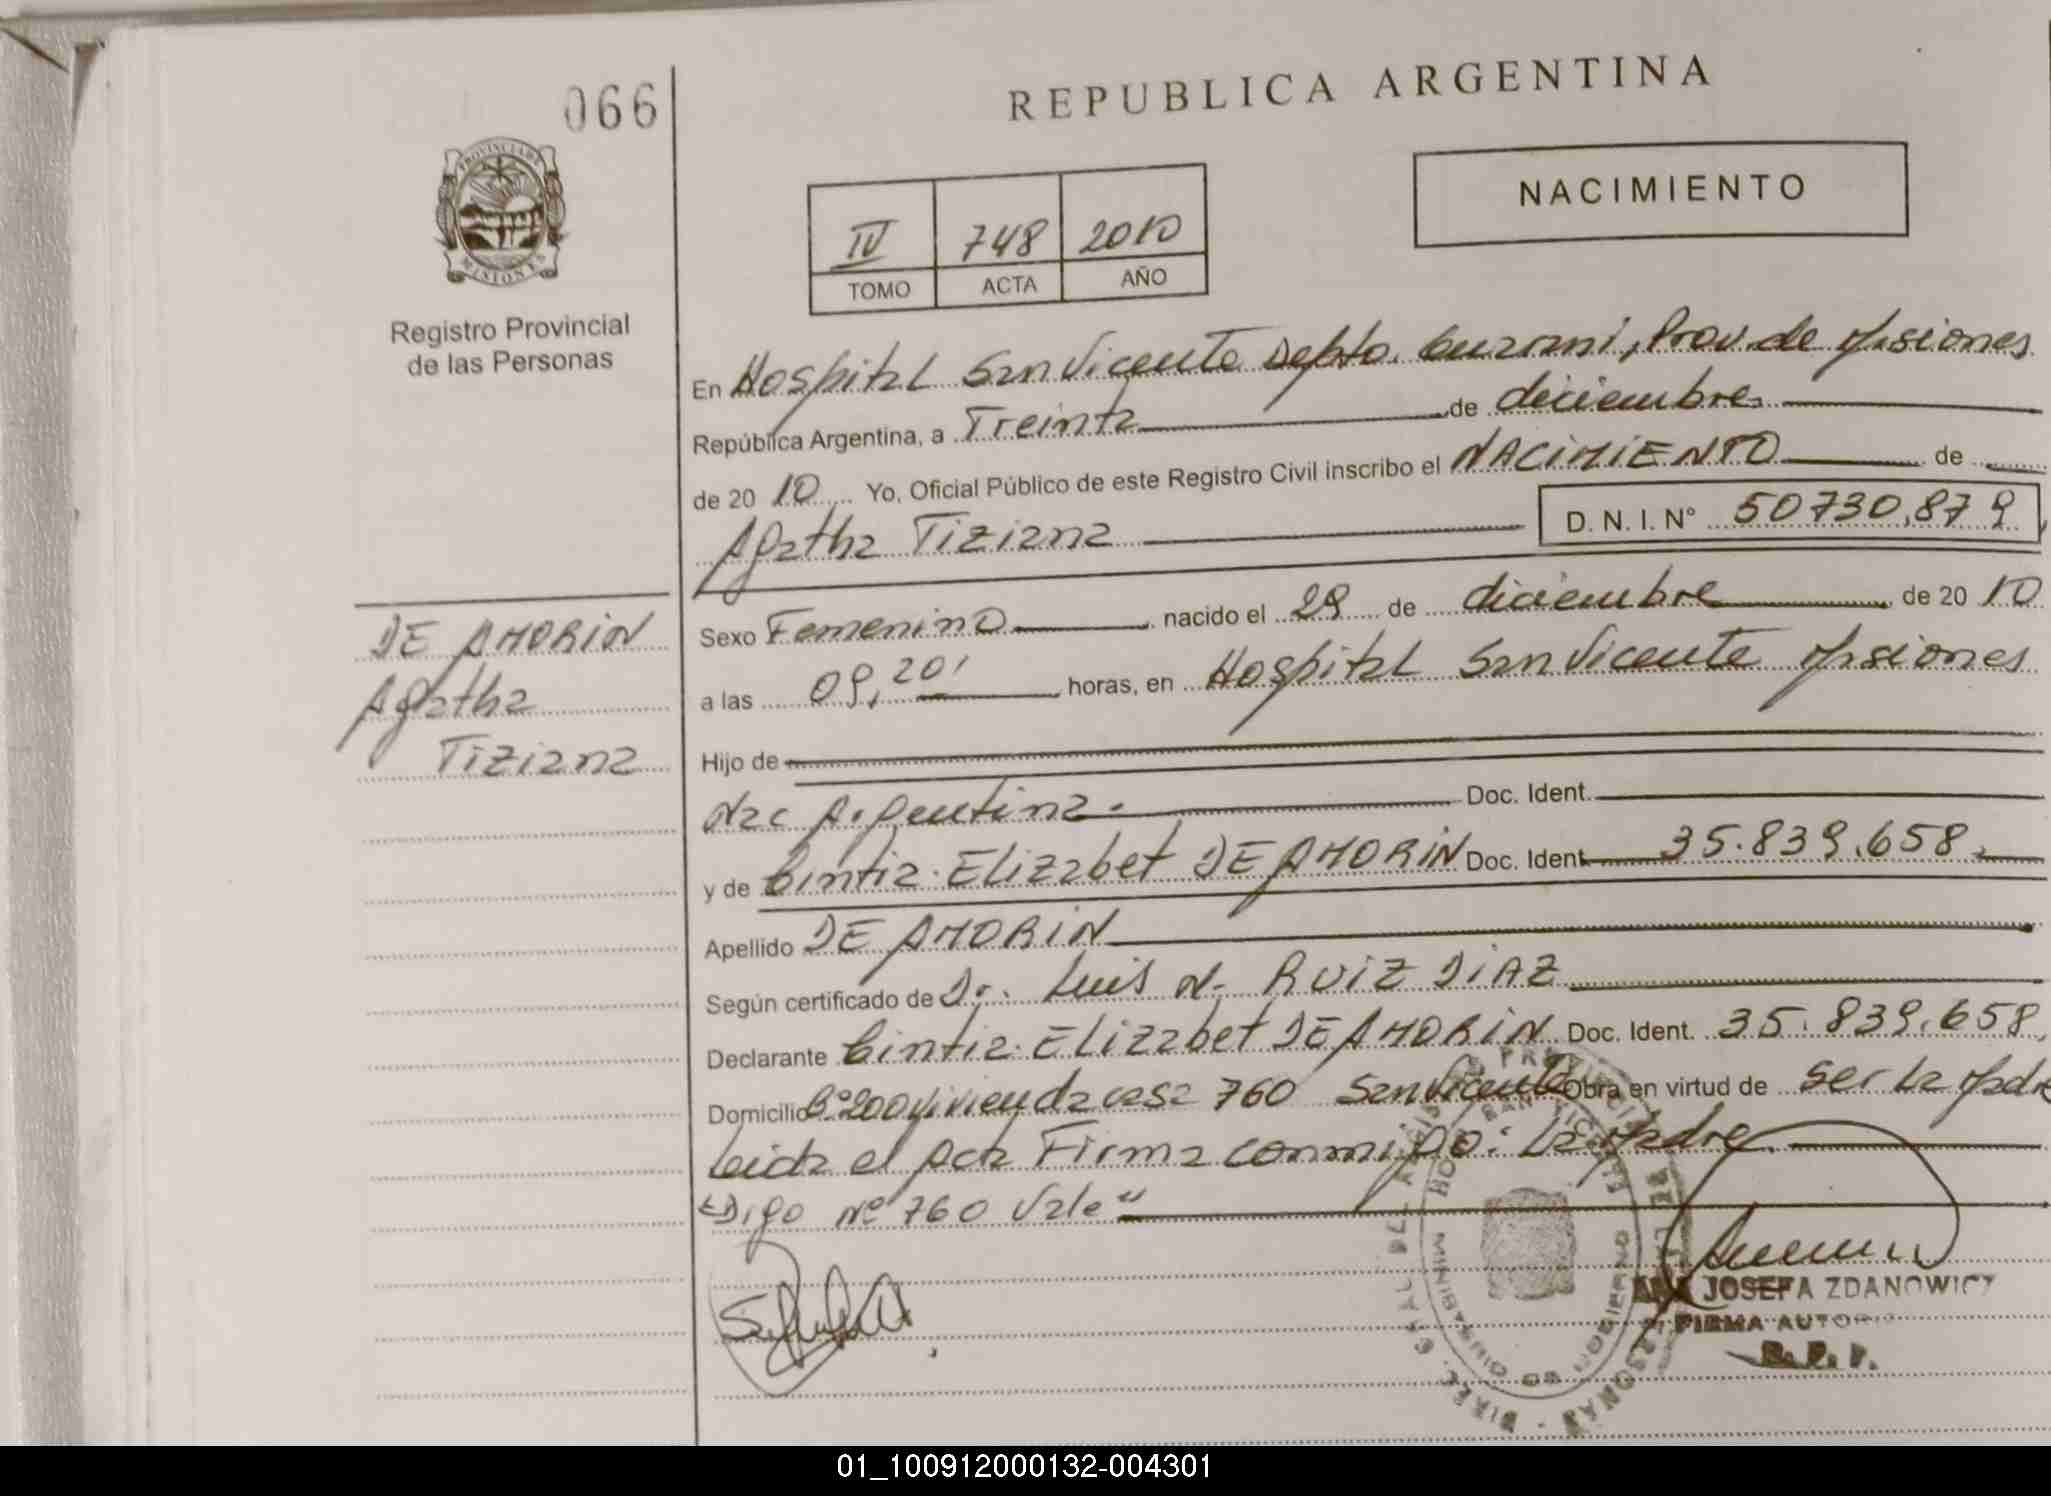 066
REPUBLICA ARGENTINA
PROVINCIA DE
MISIONES
Registro Provincial
de las Personas
IV 748 2010
TOMO ACTA AÑO
NACIMIENTO
En Hospital San Vicente Depto. Guarani, Prov. de Misiones
República Argentina, a Treinta de diciembre
de 20 10 Yo, Oficial Público de este Registro Civil inscribo el NACIMIENTO de
Agatha Tiziana D. N. I. N° 50730.879
DE AMORIN
Agatha
Tiziana
Sexo Femenino nacido el 29 de diciembre de 20 10
a las 09,20' horas, en Hospital San Vicente Misiones
Hijo de
Nac Argentina. Doc. Ident.
y de Cintia Elizabet DE AMORIN Doc. Ident 35.839.658
Apellido DE AMORIN
Según certificado de Dr. Luis N. RUIZ DIAZ
Declarante Cintia Elizabet DE AMORIN Doc. Ident. 35.839.658
Domicilio B° 200 vivienda casa 760 San Vicente Obra en virtud de ser la Madre
Leida el Acta Firma conmigo: La Madre
"Digo N° 760 Vale"
JOSEFA ZDANOWICZ
FIRMA AUTORI
R. P. P.
01_100912000132-004301